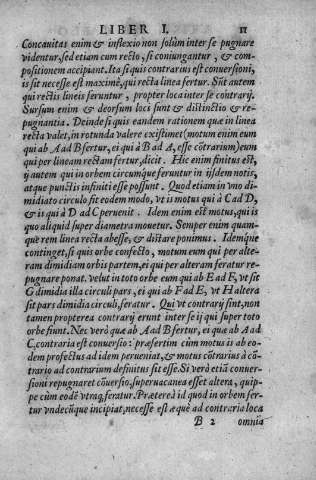 LIBER I. 11
Concauitas enim & inflexio non solùm inter se pugnare
videntur, sed etiam cum recto, si coniungantur, & com-
positionem accipant. Ita si quis contrarius est conuersioni,
is sit necesse est maximè, qui recta linea fertur. Sũt autem
qui rectis lineis feruntur, propter loca inter se cõtrarij.
Sursum enim & deorsum loci sunt & distinctio & re-
pugnantia. Deinde si quis eandem rationem quæ in linea
recta valet, in rotunda valere existimet (motum enim eum
qui ab A ad B fertur, ei qui à B ad A, esse cõtrarium) eum
qui per lineam rectam fertur, dicit. Hic enim finitus est,
ij autem qui in orbem circumque feruntur in ijsdem notis,
atque punctis infiniti esse possunt. Quod etiam in vno di-
midiato circulo fit eodem modo, vt is motus qui à C ad D,
& is qui à D ad C peruenit. Idem enim est motus, qui is
quo aliquid super diametra mouetur. Semper enim quam-
que rem linea recta abesse, & distare ponimus. Idemque
continget, si quis orbe confecto, motum eum qui per alte-
ram dimidiam orbis partem, ei qui per alteram feratur re-
pugnare ponat. velut in toto orbe eum qui ab E ad F, vt sit
G dimidia illa circuli pars, ei qui ab F ad E, vt H altera
sit pars dimidia circuli, feratur. Qui vt contrarij sint, non
tamen propterea contrarij erunt inter se ij qui super toto
orbe fiunt. Nec verò quæ ab A ad B fertur, ei quæ ab A ad
C, contraria est conuersio: præsertim cùm motus is ab eo-
dem profectus ad idem perueniat, & motus cõtrarius à cõ-
trario ad contrarium definitus sit esse. Si verò etiã conuer-
sioni repugnaret cõuersio, superuacanea esset altera, quip-
pe cùm eodẽ vtraq; feratur. Præterea id quod in orbem fer-
tur vndecũque incipiat, necesse est æquè ad contraria loca
B 2 omnia